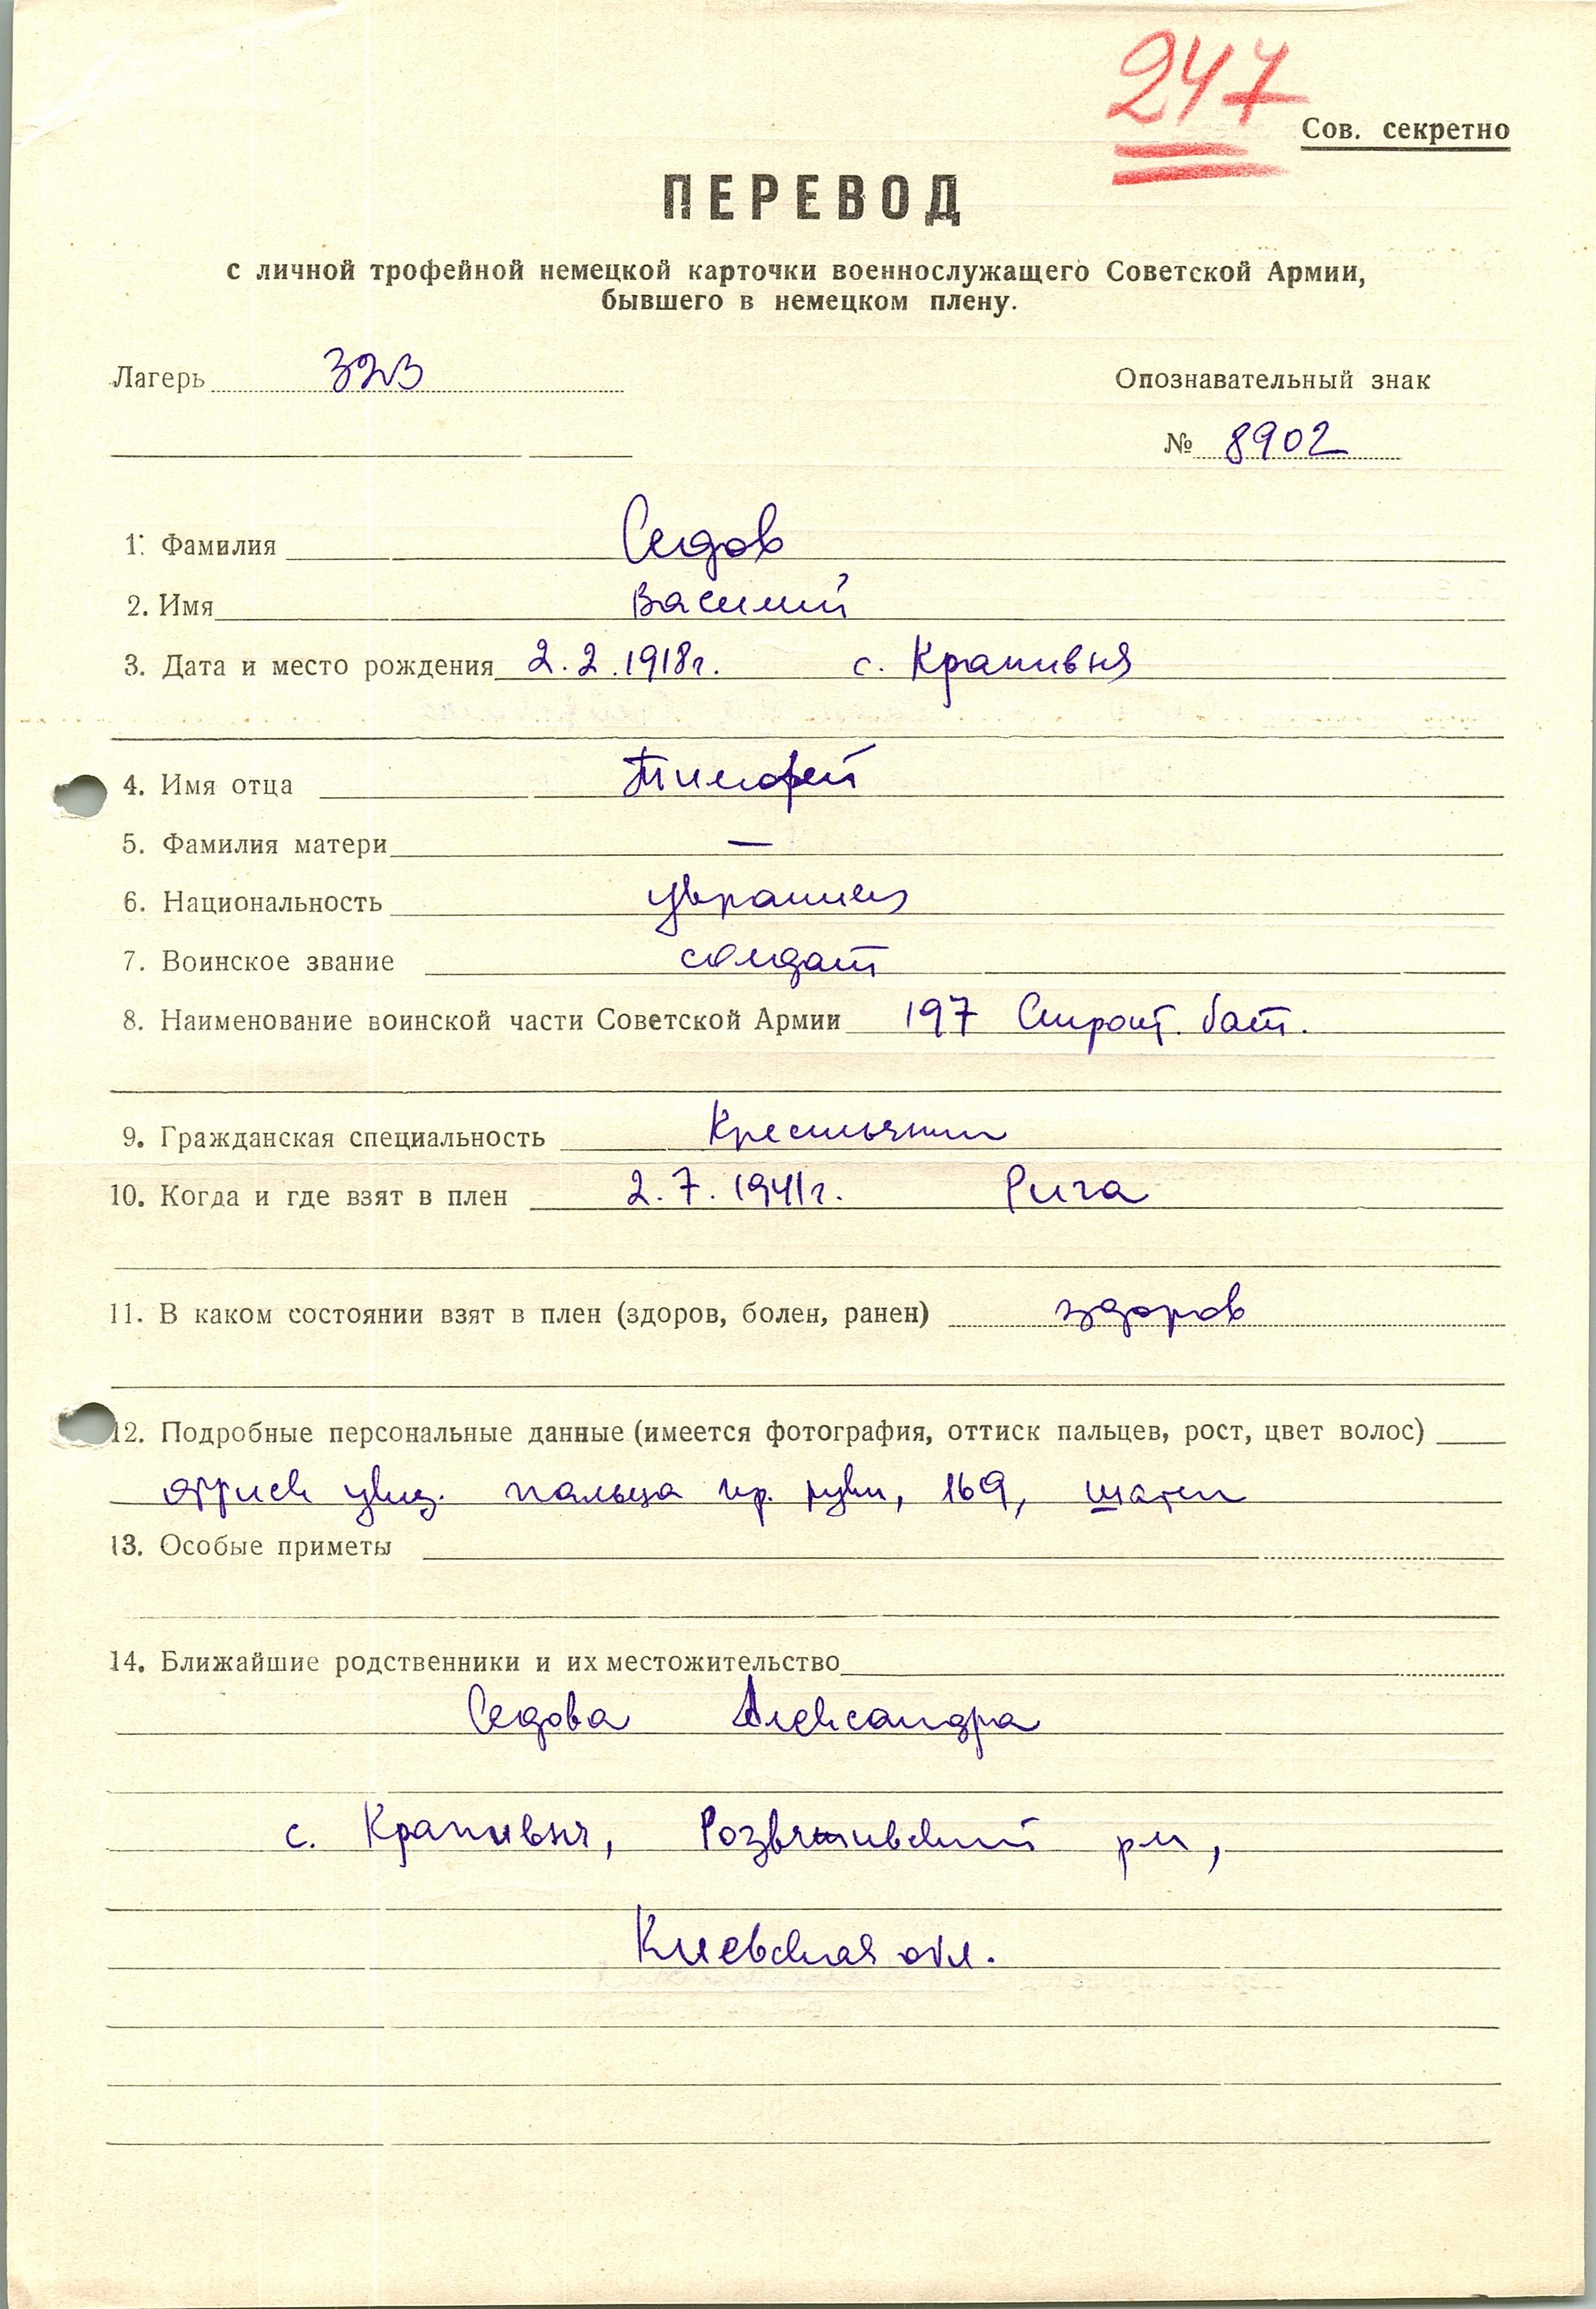 247
Сов. секретно
ПЕРЕВОД
с личной трофейной немецкой карточки военнослужащего Советской Армии,
бывшего в немецком плену.
Лагерь 323
Опознавательный знак
№ 8902
1. Фамилия Седов
2. Имя Василий
3. Дата и место рождения 2.2.1918г. с. Крапивня
4. Имя отца Тимофей
5. Фамилия матери —
6. Национальность украинец
7. Воинское звание солдат
8. Наименование воинской части Советской Армии 197 Строит. бат.
9. Гражданская специальность Крестьянин
10. Когда и где взят в плен 2.7.1941г. Рига
11. В каком состоянии взят в плен (здоров, болен, ранен) здоров
12. Подробные персональные данные (имеется фотография, оттиск пальцев, рост, цвет волос)
оттиск указ. пальца пр. руки, 169, шатен
13. Особые приметы
14. Ближайшие родственники и их местожительство
Седова Александра
с. Крапивня, Розваживский рн,
Киевская обл.